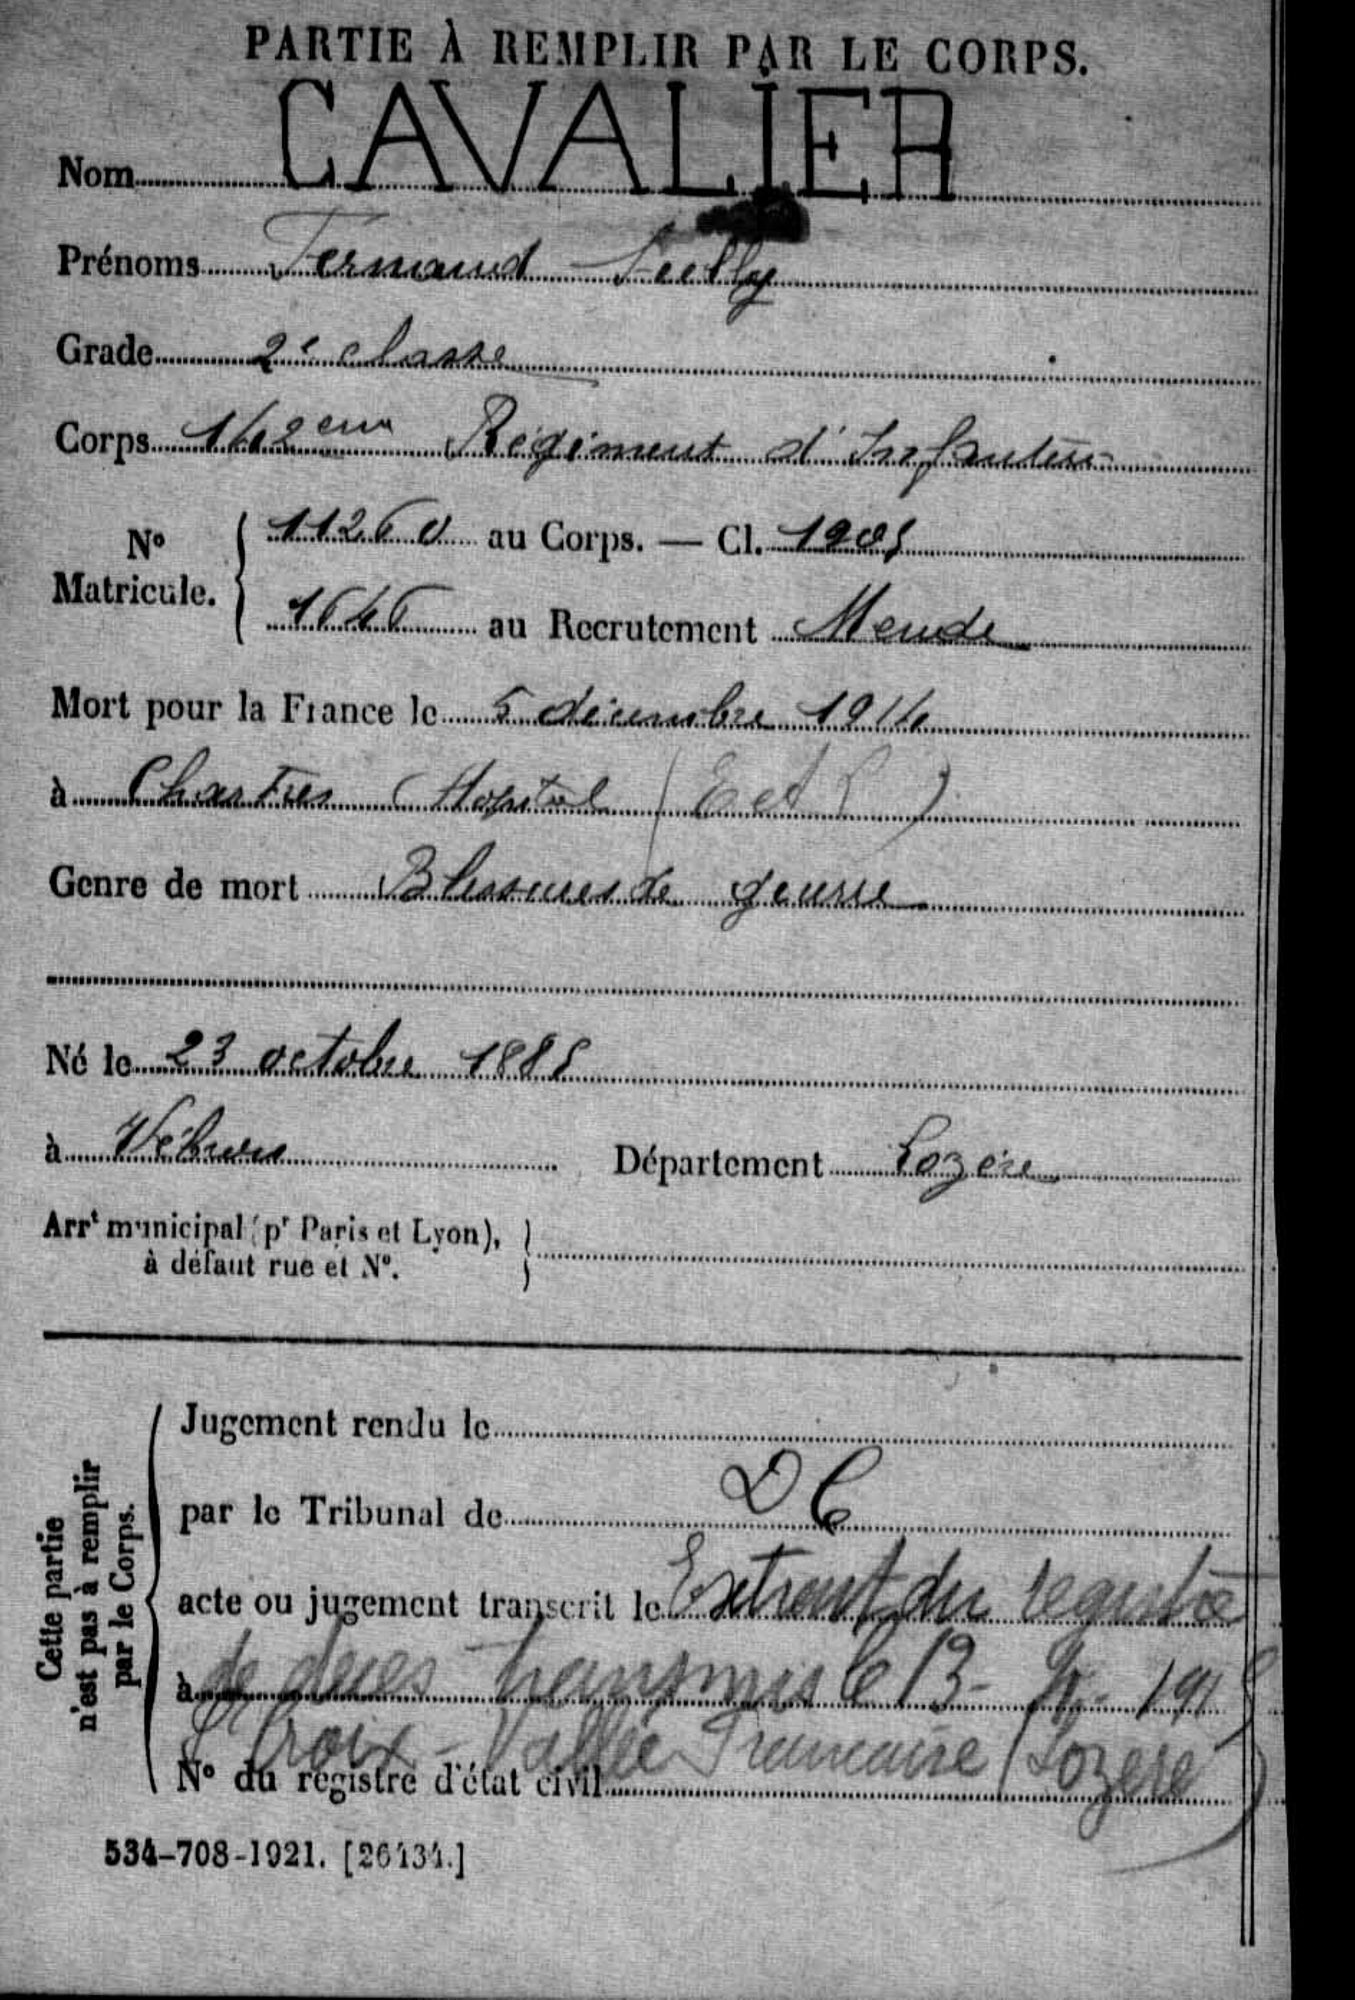 PARTIE À REMPLIR PAR LE CORPS.
Nom CAVALIER
Prénoms Fernand
Grade 2e classe
Corps 142eme Régiment d'Infanterie
No Matricule. { 11260 au Corps. — Cl. 1905
1646 au Recrutement Mende
Mort pour la France le 5 décembre 1914
à Chartres Hopital (E et L)
Genre de mort Blessures de guerre
Né le 23 octobre 1885
à Département Lozère
Arrt municipal (pr Paris et Lyon), à défaut rue et No. }
Cette partie n'est pas à remplir par le Corps.
Jugement rendu le
par le Tribunal de DC
acte ou jugement transcrit le Extrait du registre
à de décès transmis le 13- 191
Ste Croix - Vallée Francaise (Lozere)
No du registre d'état civil
534-708-1921. [26434.]